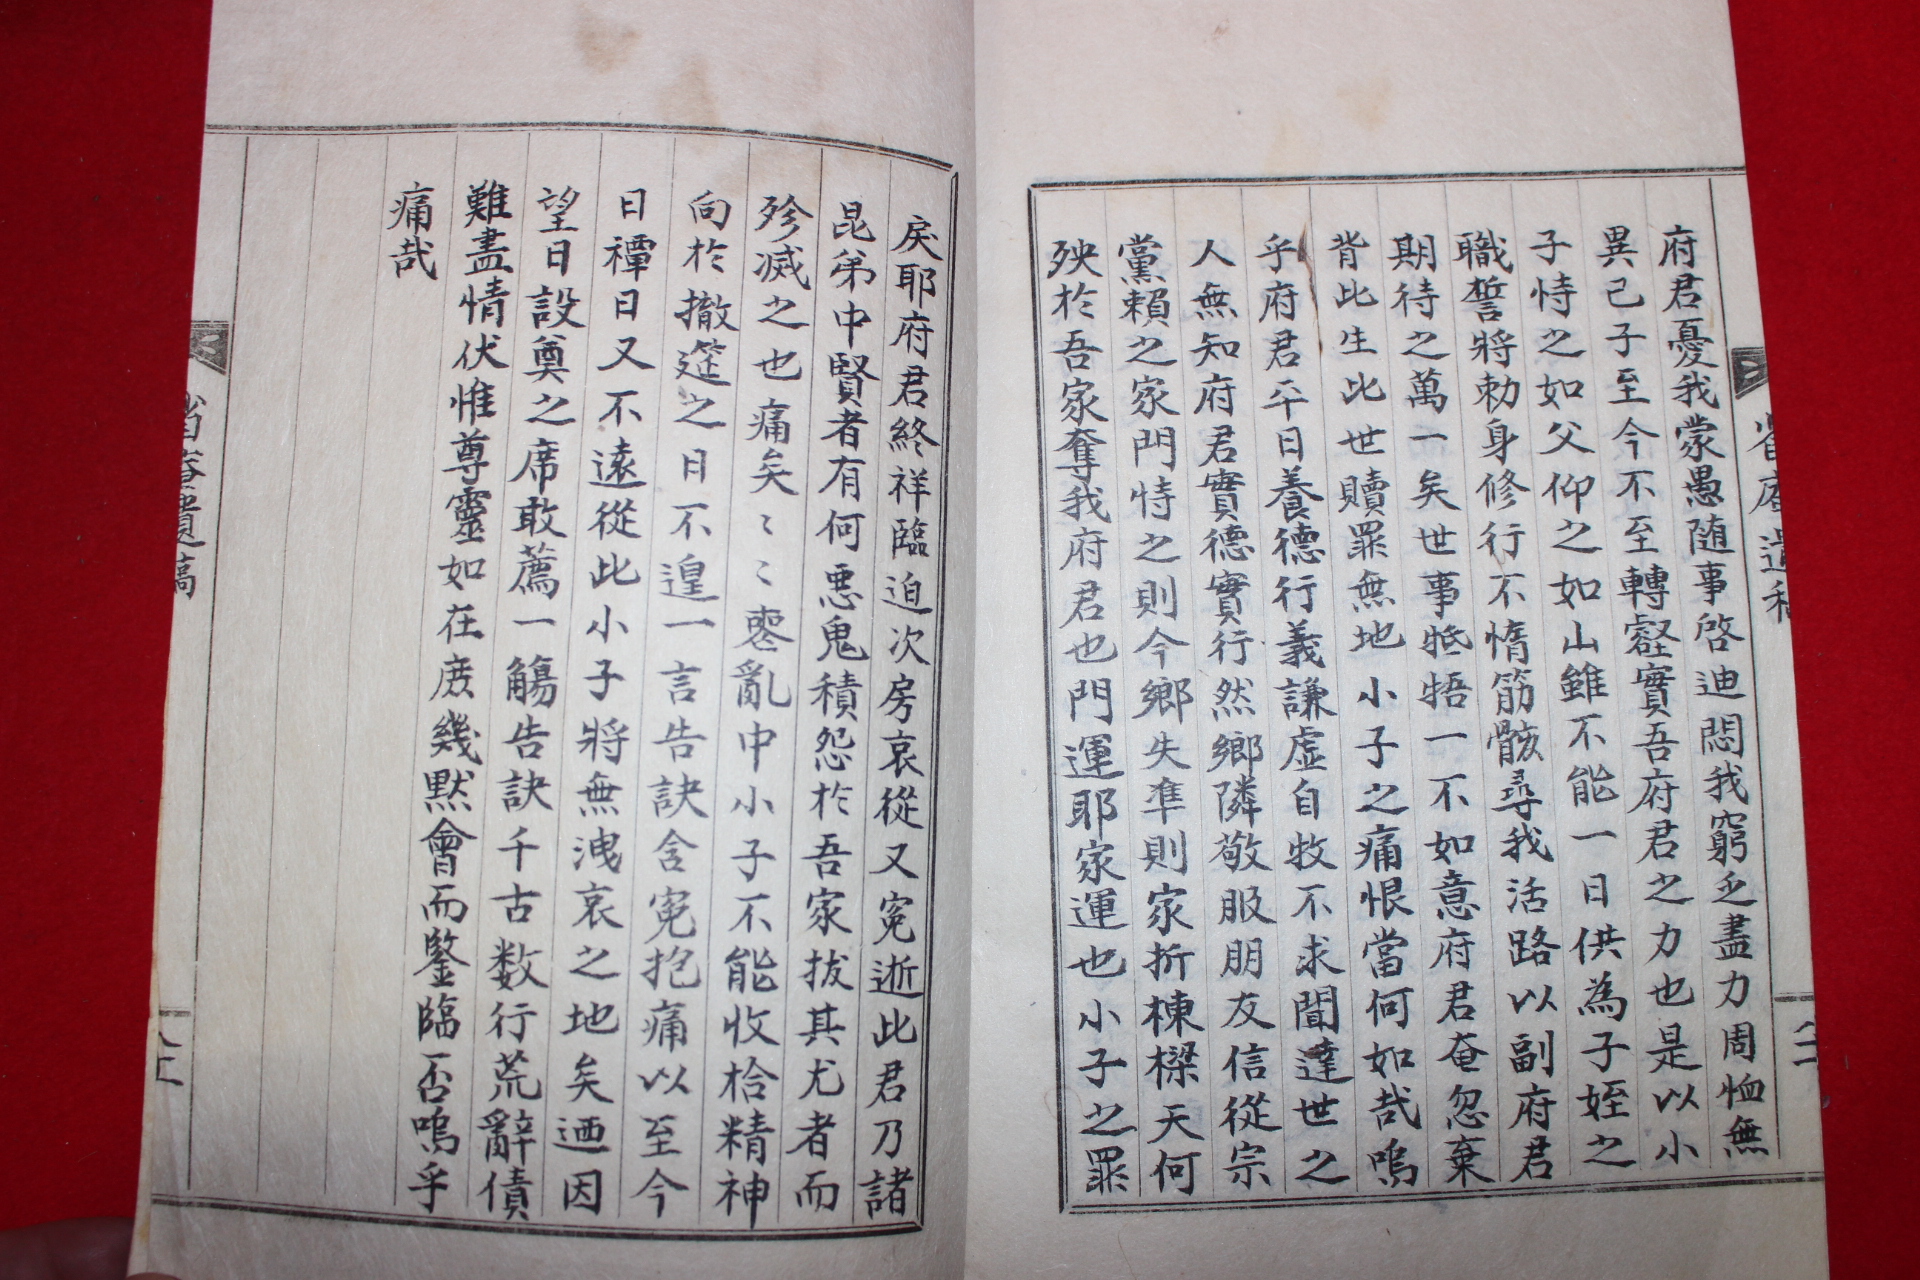 府君憂我蒙愚随事啓迪悶我窮乏盡力周恤無
異己子至今不至轉壑實吾府君之力也是以小
子恃之如父仰之如山雖不能一日供為子姪之
職誓將勅身修行不惰筋骸尋我活路以副府君
期待之萬一矣世事牴牾一不如意府君奄忽棄
背此生此世贖罪無地小子之痛恨當何如哉嗚
乎府君平日養德行義謙虛自牧不求聞達世之
人無知府君實德實行然鄉隣敬服朋友信從宗
黨賴之家門恃之則今鄉失準則家折棟樑天何
殃於吾家奪我府君也門運耶家運也小子之罪
戾耶府君終祥臨迫次房哀從又冤逝此君乃諸
昆弟中賢者有何惡鬼積怨於吾家拔其尤者而
殄滅之也痛矣〻〻亂中小子不能收拾精神
向於撤筵之日不遑一言告訣含冤抱痛以至今
日禫日又不遠從此小子將無洩哀之地矣迺因
望日設奠之席敢薦一觴告訣千古数行荒辭債
難盡情伏惟尊靈如在庶幾默會而鑒臨否嗚乎
痛哉
省菴遺稿